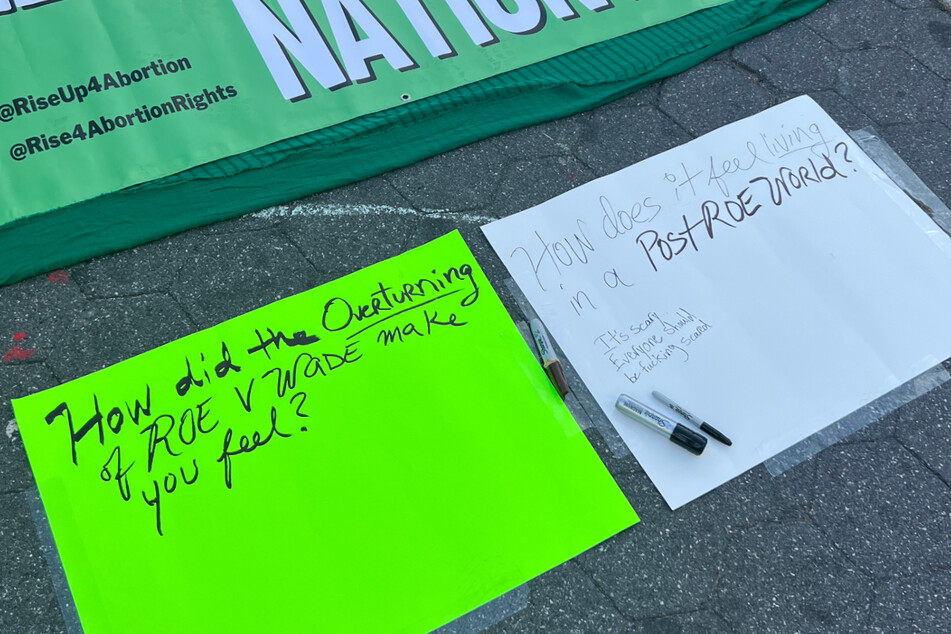 NATION
@RiseUp4Abortion
@Rise4AbortionRights
How does it feel living
in a Post ROE World?
It's scary
Everyone should
be fucking scared
How did the Overturning
of ROE V WADE make
you feel?